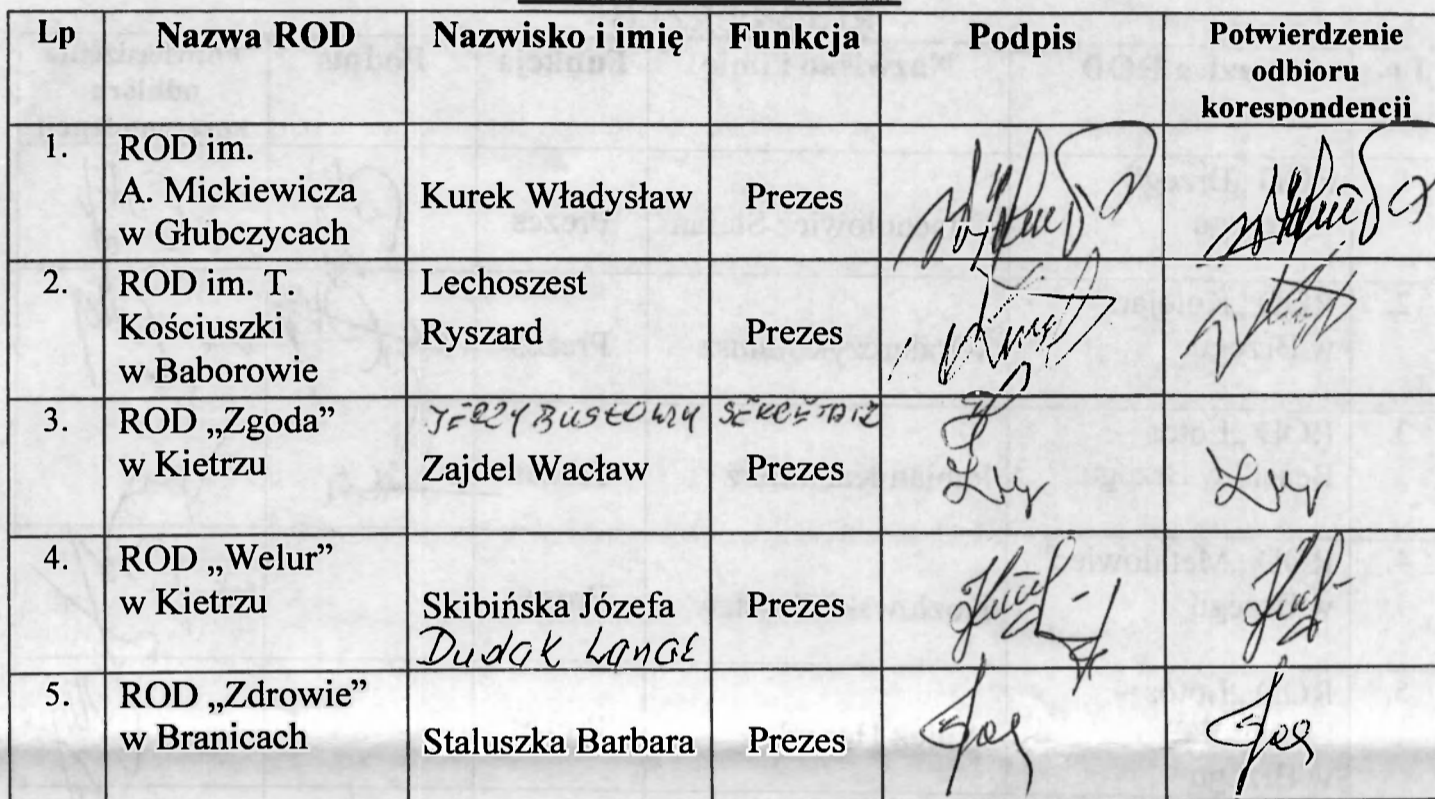 Lp Nazwa ROD Nazwisko i imię Funkcja Podpis Potwierdzenie
odbioru
korespondencji
1. ROD im.
A. Mickiewicza
w Głubczycach
Kurek Władysław Prezes
2. ROD im. T.
Kościuszki
w Baborowie
Lechoszest
Ryszard Prezes
3. ROD „Zgoda”
w Kietrzu
JERZY SEKRETARZ
Zajdel Wacław Prezes
4. ROD „Welur”
w Kietrzu
Skibińska Józefa Prezes
Dudak
5. ROD „Zdrowie”
w Branicach
Staluszka Barbara Prezes